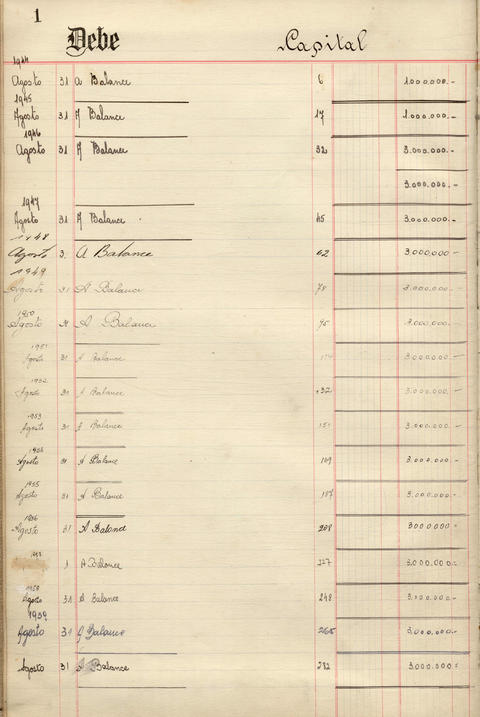 1
Debe Capital
1944
Agosto 31 a Balance 6 1.000.000.-
1945
Agosto 31 A Balance 17 1.000.000.-
1946
Agosto 31 A Balance 32 3.000.000.-
3.000.000.-
1947
Agosto 31 A Balance 45 3.000.000.-
1948
Agosto 3. A Balance 62 3.000.000-
1949
Agosto 31 A Balance 78 3.000.000.-
1950
Agosto 31 A Balance 95 3.000.000.-
1951
Agosto 31 A Balance 3.000.000.-
1952
Agosto 31 A Balance 132 3.000.000.-
1953
Agosto 31 A Balance 151 3.000.000.-
Agosto 31 A Balance 169 3.000.000.-
1955
Agosto 31 A Balance 187 3.000.000.-
1956
Agosto 31 A Balance 208 3000000-
A Balance 227 3.000.000.-
1958
Agosto 31 A Balance 248 3.000.000.-
1959
Agosto 31 A Balance 265 3.000.000.-
Agosto 31 A Balance 282 3.000.000.-